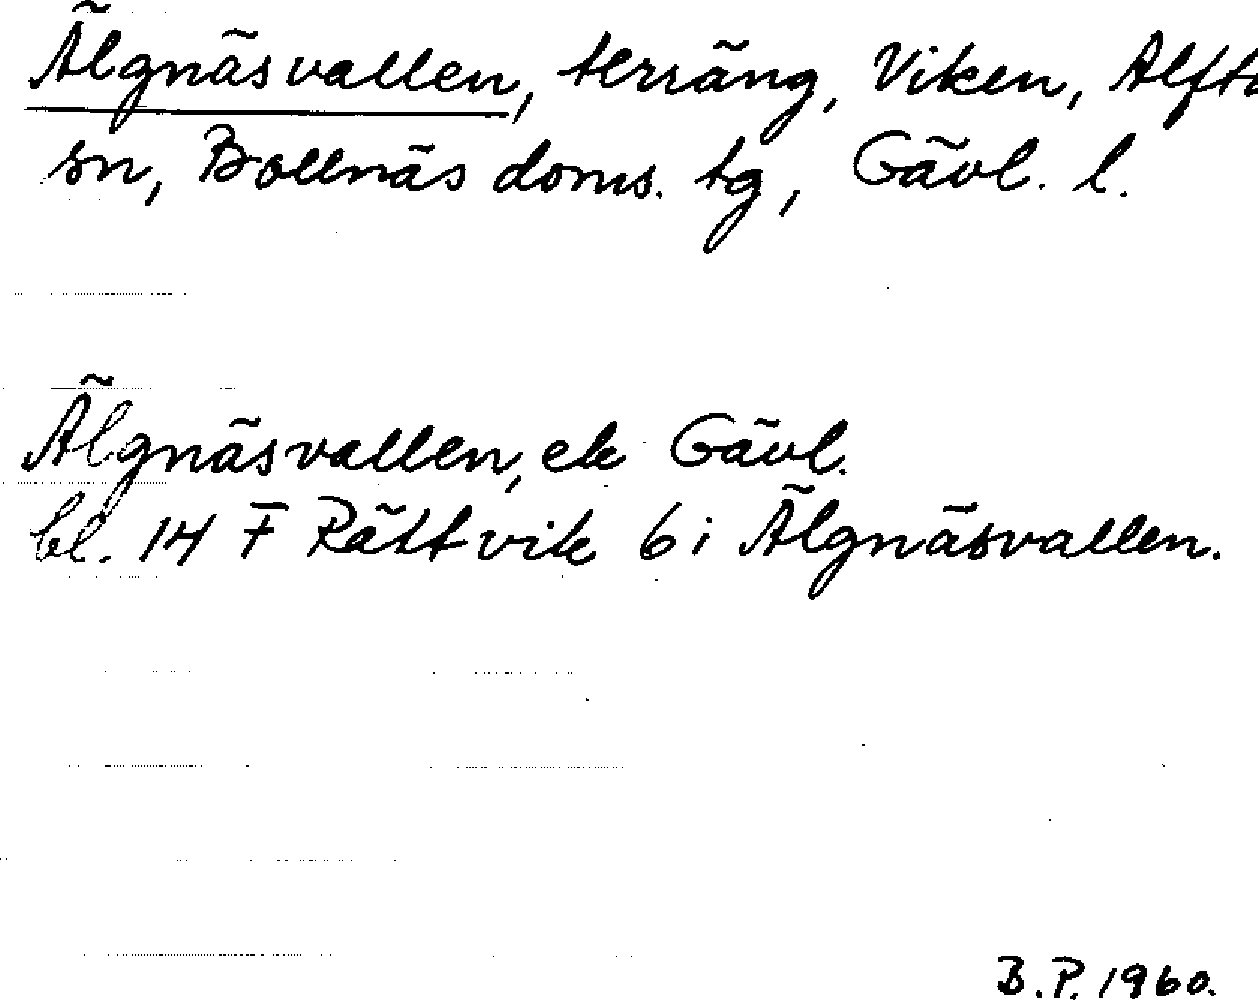 Älgnäsvallen, terräng, Viken, Alfta
sn, Bollnäs doms. tg, Gävl. l.
Älgnäsvallen, ek Gävl.
bl. 14 F Rättvik 6 i Älgnäsvallen.
B.P. 1960.